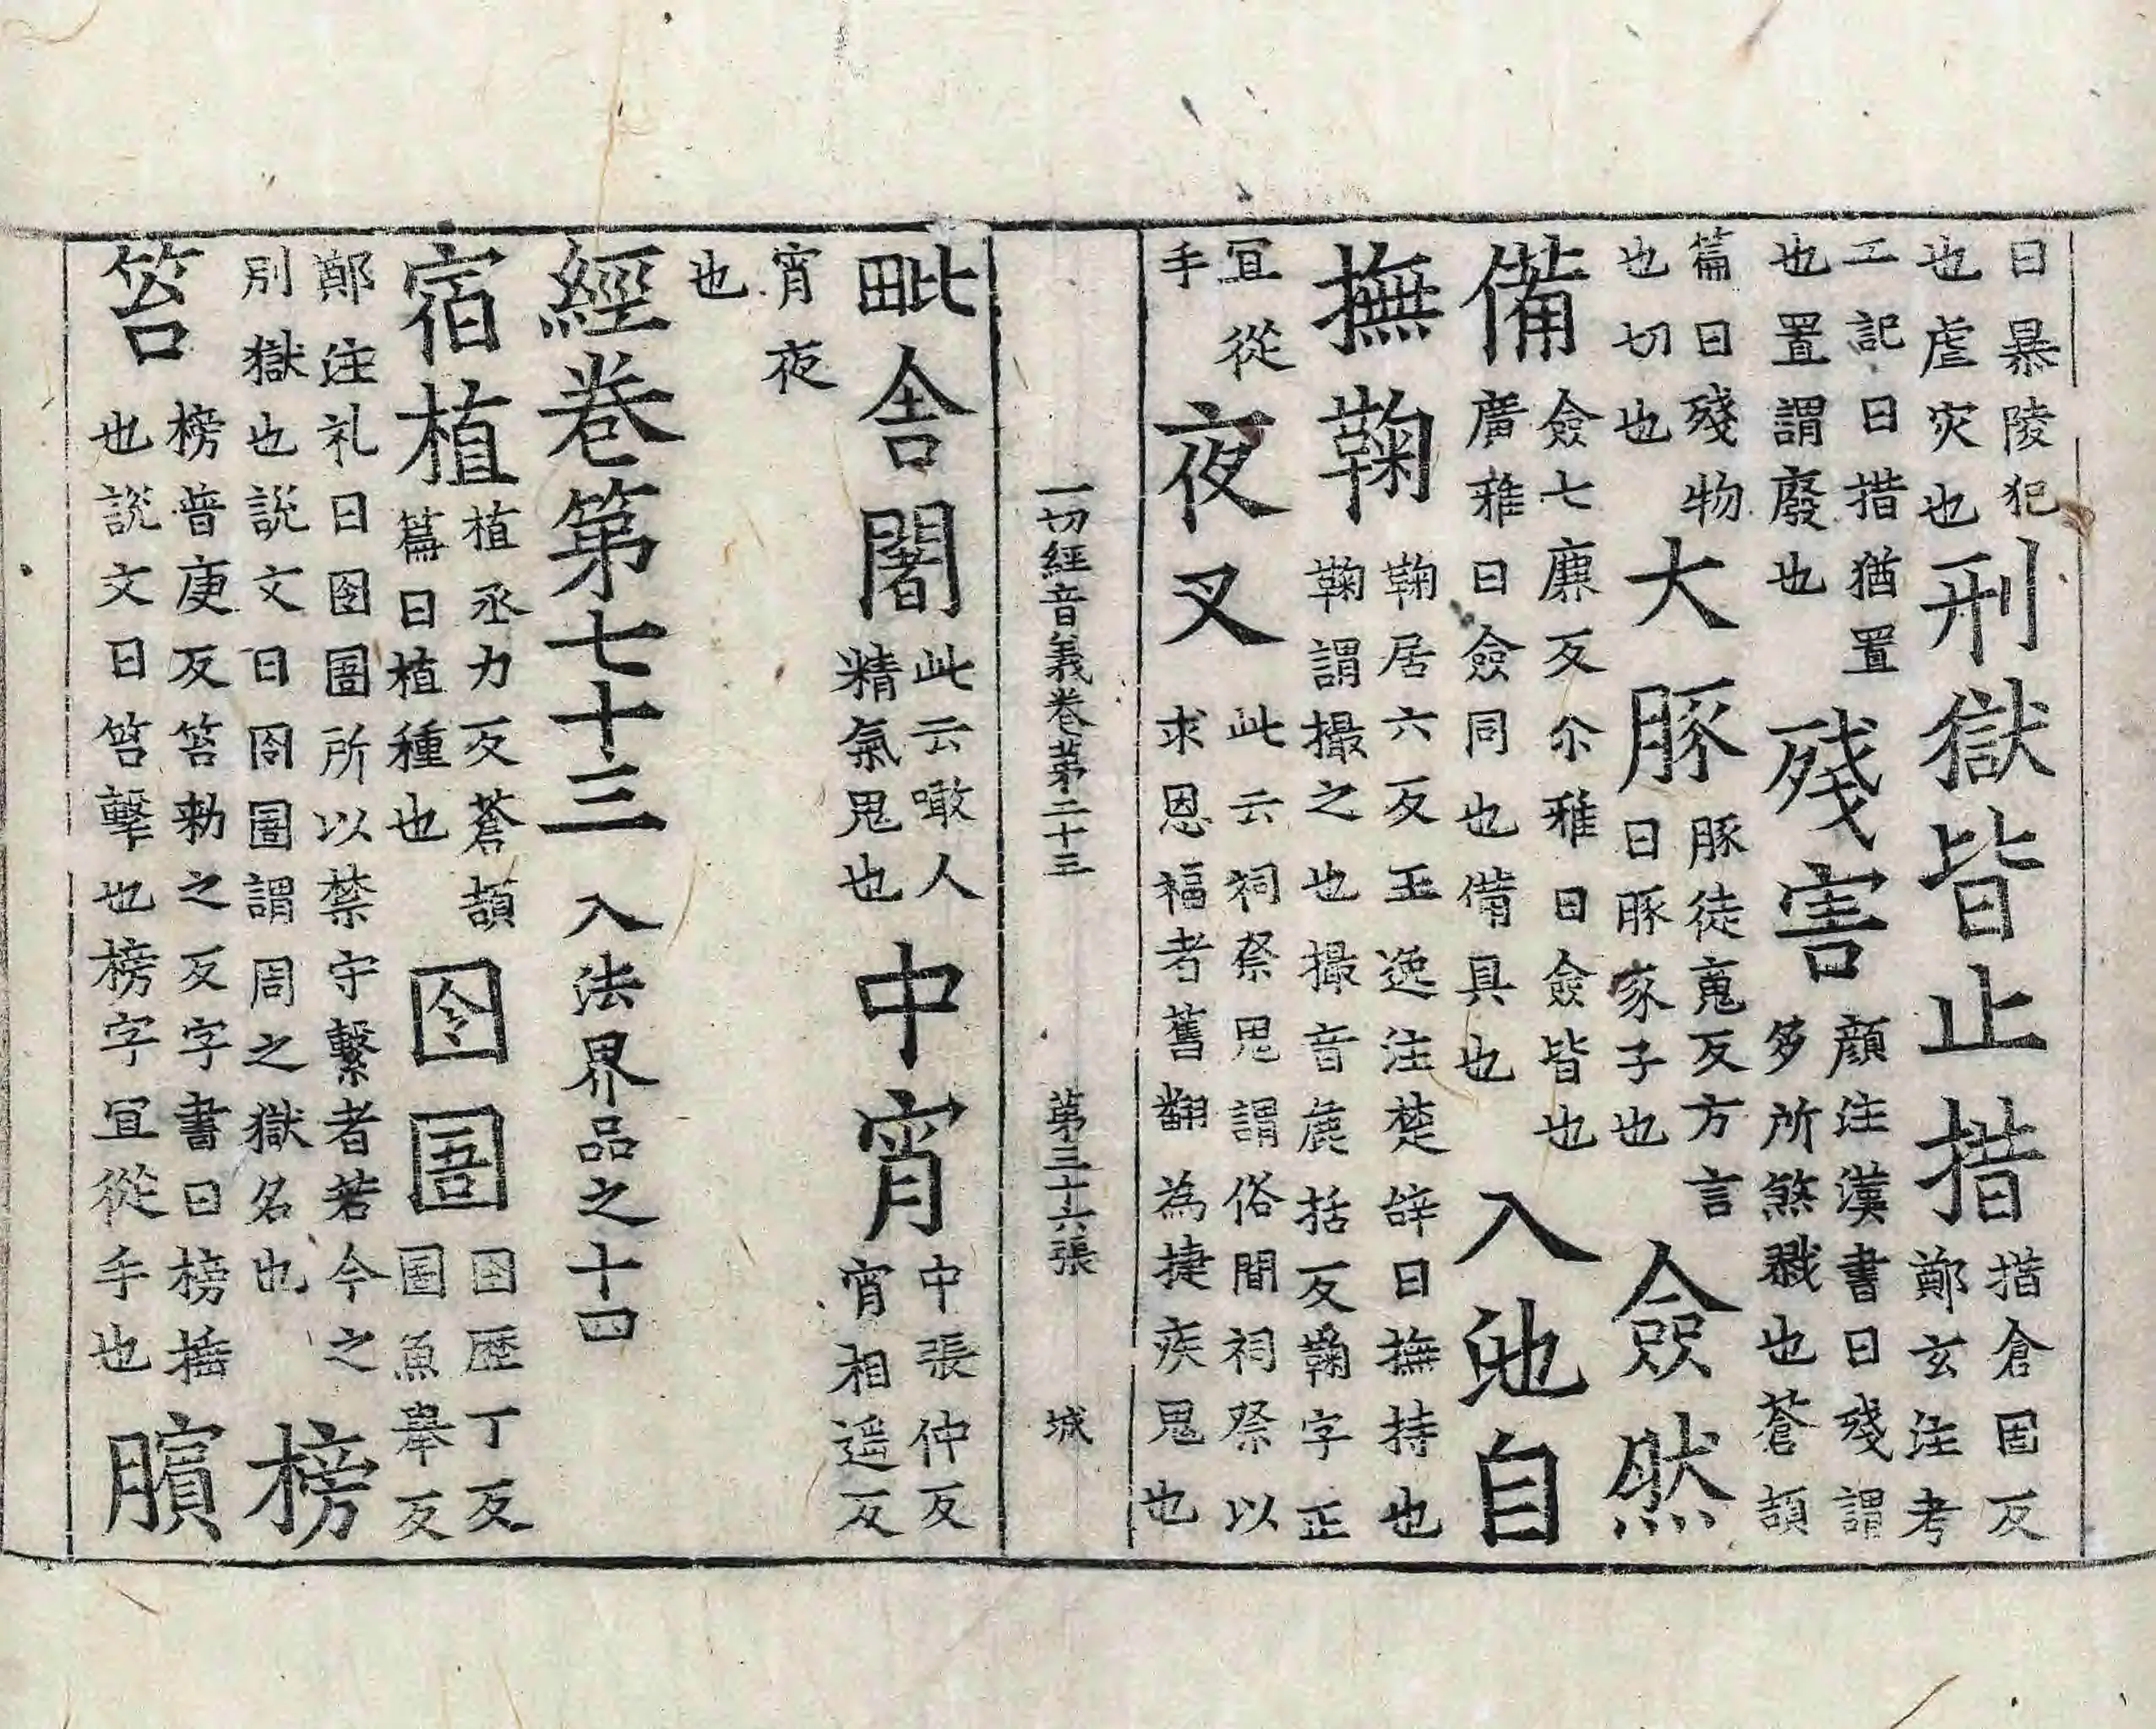 曰暴陵犯
也虐灾也
刑獄皆止措
措倉固反
鄭玄注考
工記曰措猶置
也置謂廢也
殘害
顔注漢書曰殘謂
多所煞戮也蒼頡
篇曰殘物
也切也
大豚
豚徒䰟反方言
曰豚豕子也
僉然
備
僉七廉反尒雅曰僉皆也
廣雅曰僉同也備具也
入自
撫鞠
鞠居六反王逸注楚辝曰撫持也
鞠謂撮之也撮音麁括反鞠字正
冝從
手
夜叉
此云祠祭鬼謂俗間祠祭以
求恩福者舊翻為捷疾鬼也
一切經音義卷第二十三 第三十六張 城
毗舍闍
此云噉人
精氣鬼也
中宵
中張仲反
宵相遥反
宵夜
也
經卷第七十三 入法界品之十四
宿植
植丞力反蒼頡
篇曰植種也
囹圄
囹歷丁反
圄魚舉反
鄭注礼曰囹圄所以禁守繫者若今之
別獄也說文曰囹圄謂周之獄名也
榜
笞
榜普庚反笞勑之反字書曰榜捶
也說文曰笞擊也榜字冝從手也
臏